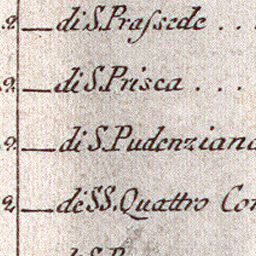 2. — di S. Prassede . .
2. — di S. Prisca . . .
2. — di S. Pudenziana
2 — de SS. Quattro Cor